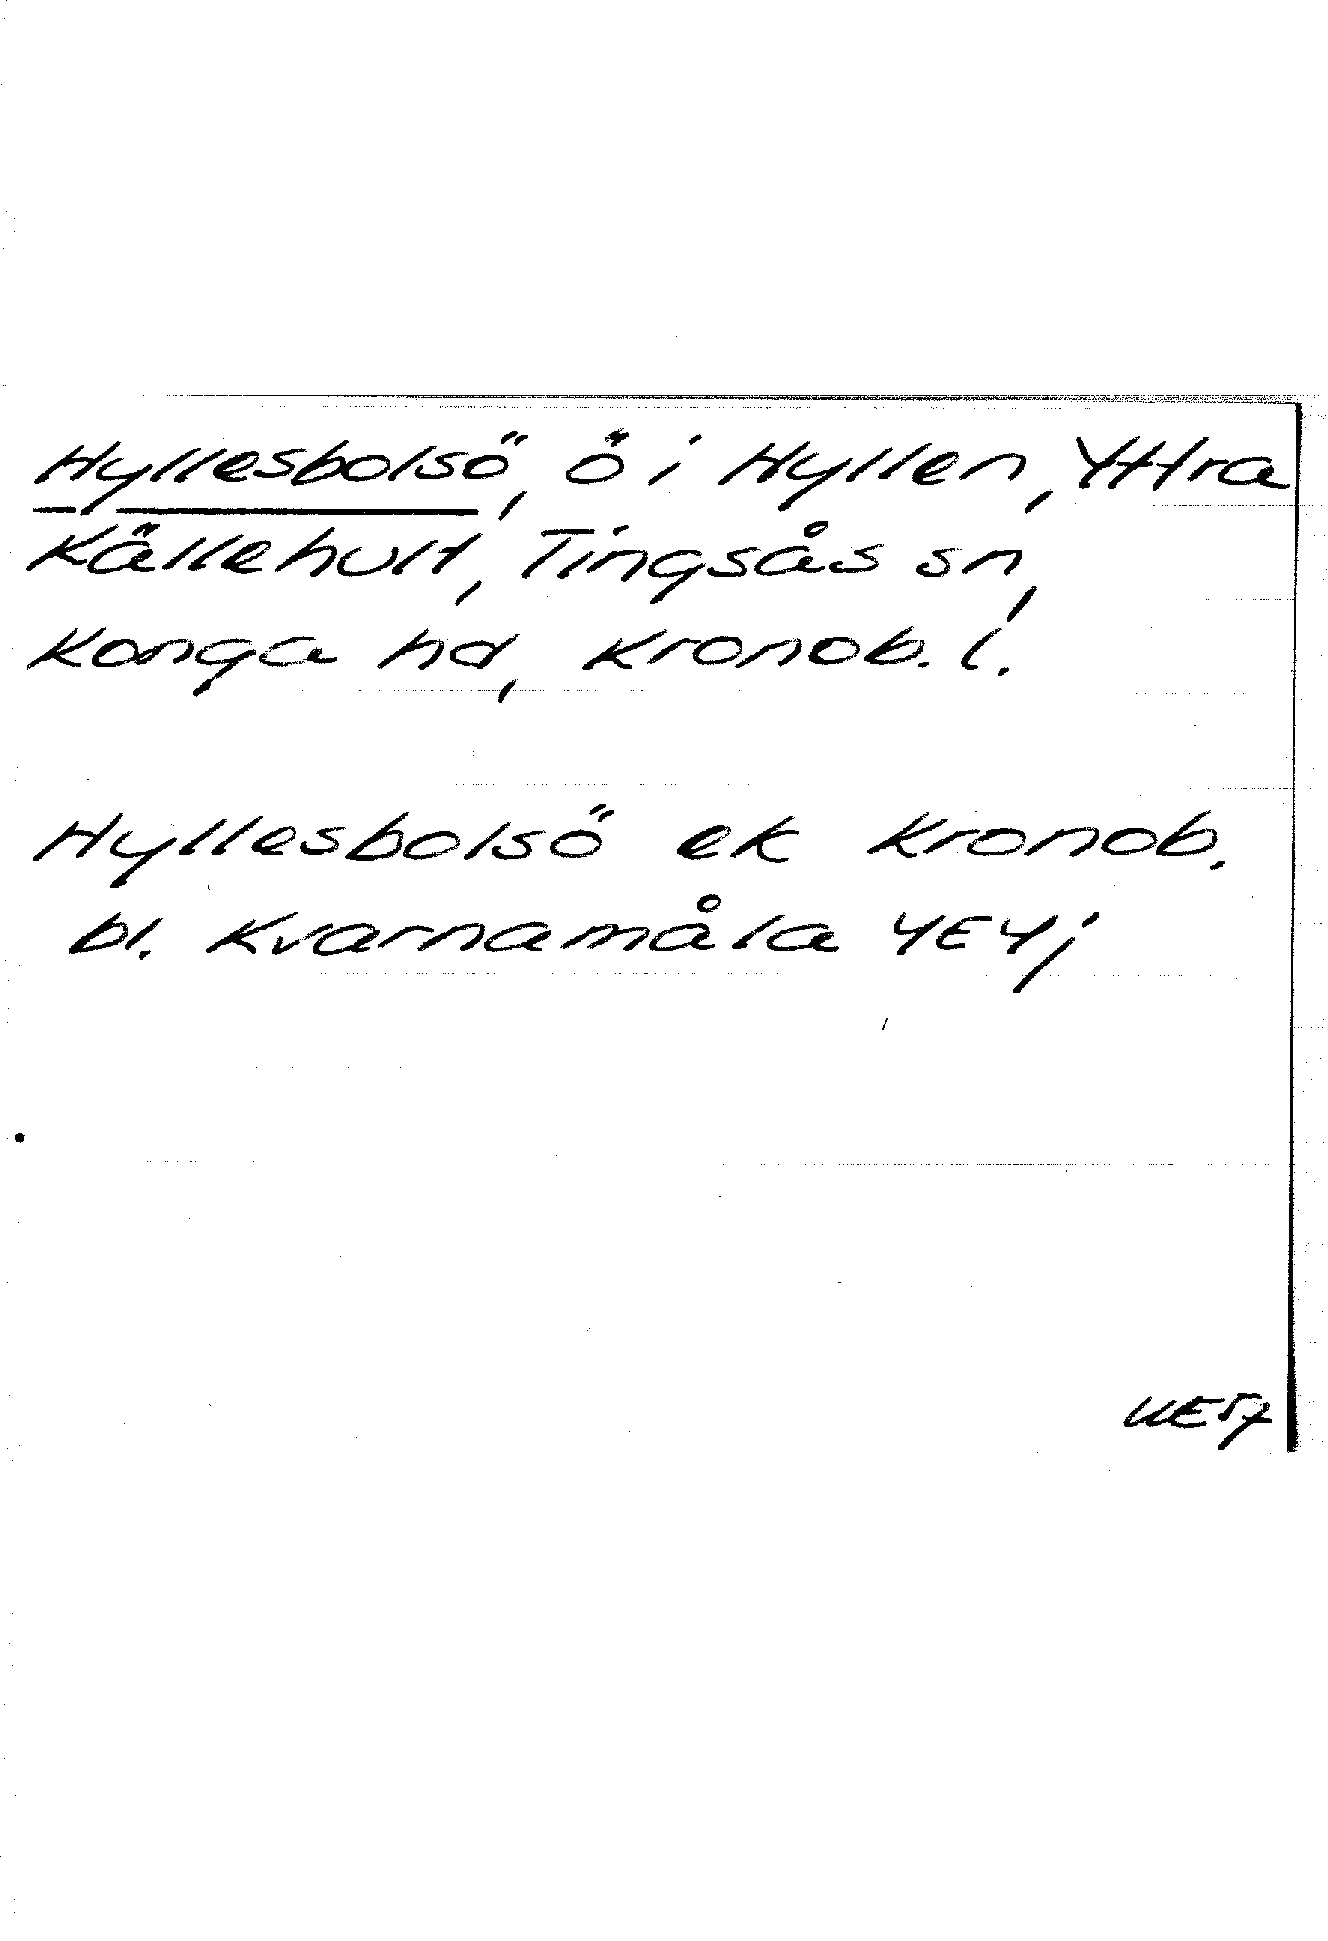 Hyllesbolsö, ö i Hyllen, Yttra
Källehult, Tingsås sn,
Konga hd, Kronob. l.
Hyllesbolsö ek Kronob.
bl. Kvarnamåla 4E4j
UE57